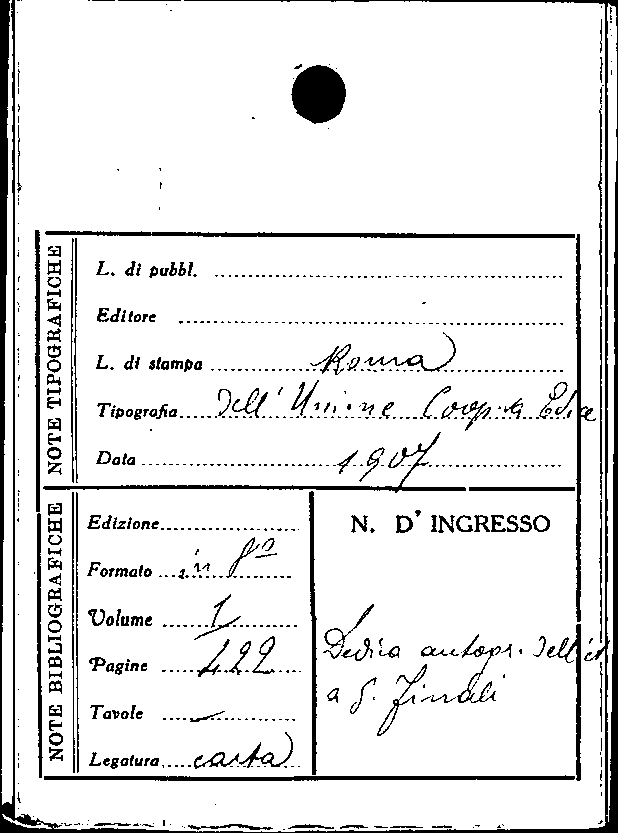 NOTE TIPOGRAFICHE
L. di pubbl.
Editore
L. di stampa Roma
Tipografia Dell' Unione Coop.va Edice
Data 1907
NOTE BIBLIOGRAFICHE
Edizione
Formato in 8º
Volume 1
Pagine 422
Tavole —
Legatura carta
N. D' INGRESSO
Dedica autogr. dell'
a G. Finali